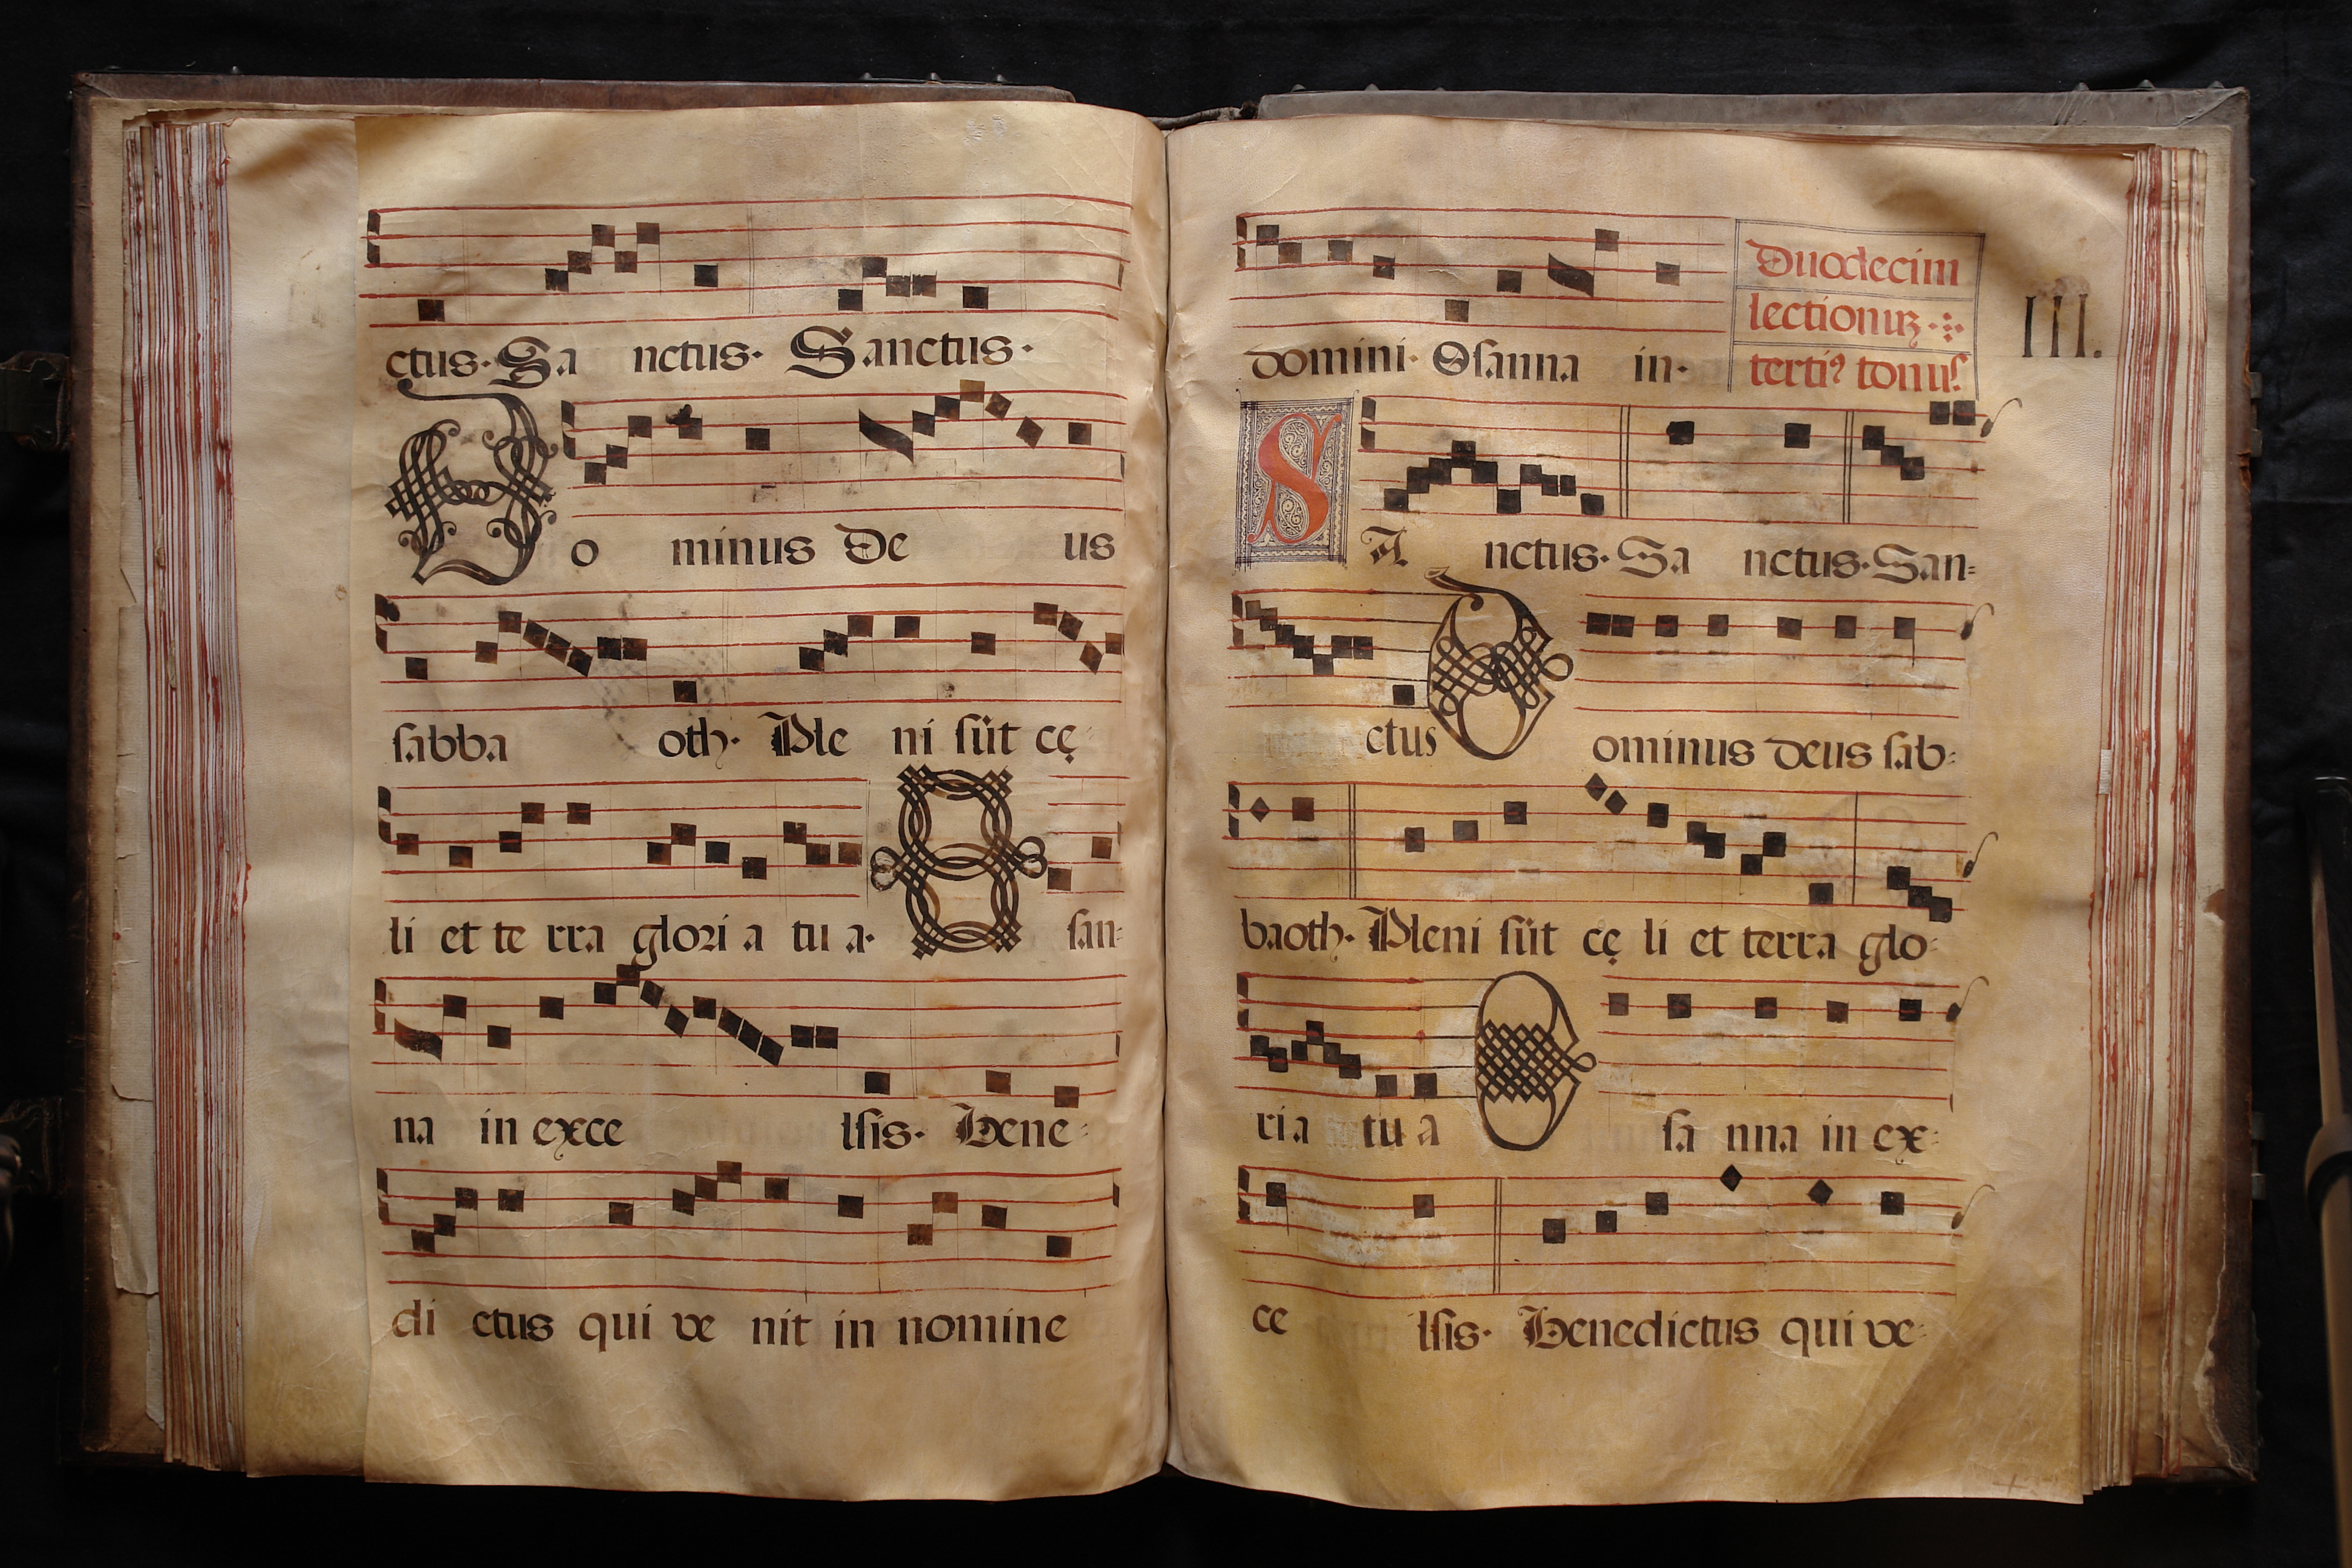 ctus· Sa nctus· Sanctus·
Do minus De us
sabba oth· Ple ni sũt cę-
li et te rra glori a tu a· O san-
na in exce lsis· Bene-
di ctus qui ve nit in nomine
domini· Osanna in·
Duodecim
lectionuꝝ·
terti⁹ tonus
III.
SA nctus· Sa nctus· San=
ctus Dominus deus sab-
baoth· Pleni sũt cę li et terra glo-
ria tu a O sa nna in ex-
ce lsis· Benedictus qui ve-